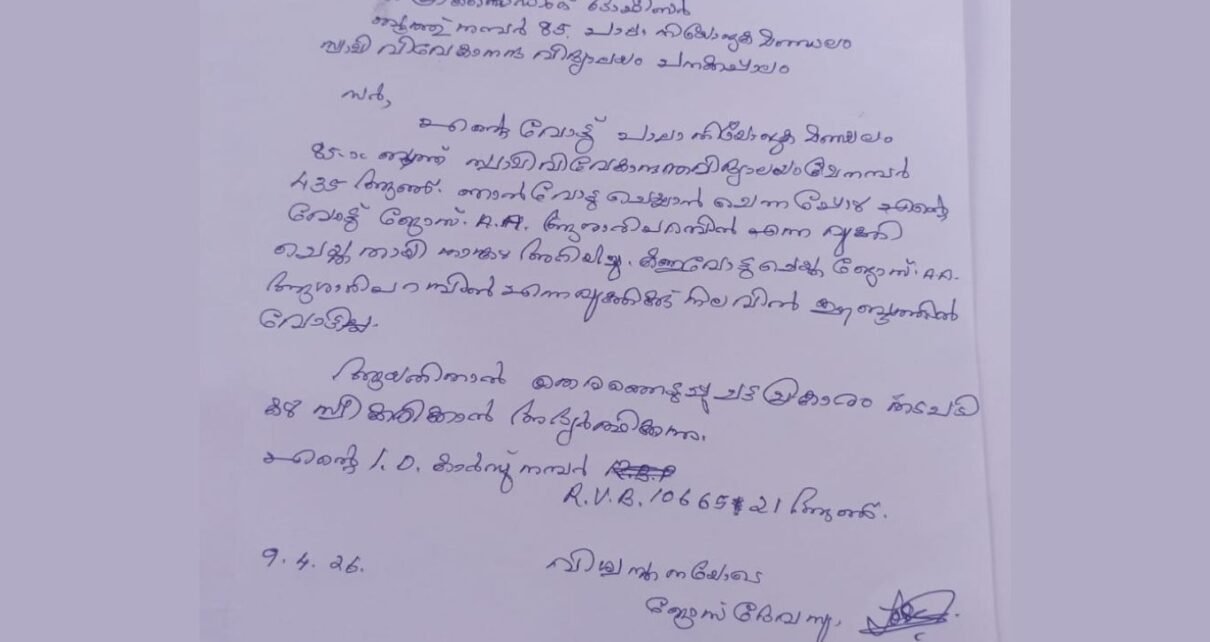 ബൂത്ത് നമ്പർ 85. പാലാ നിയോജക മണ്ഡലം
സ്വാമി വിവേകാനന്ദ വിദ്യാലയം പനക്കപ്പാലം
സർ,
എന്റെ വോട്ട് പാലാ നിയോജക മണ്ഡലം
85-ാം ബൂത്ത് സ്വാമി വിവേകാനന്ദവിദ്യാലയം ക്രമനമ്പർ
435 ആണ്. ഞാൻ വോട്ടു ചെയ്യാൻ ചെന്നപ്പോൾ എന്റെ
വോട്ട് ജോസ്. A.A. എന്ന വ്യക്തി
ചെയ്തതായി അറിയിച്ചു. വോട്ടു ചെയ്ത ജോസ്. A.A.
എന്ന വ്യക്തിക്ക് നിലവിൽ ഈ ബൂത്തിൽ
വോട്ടില്ല.
ആയതിനാൽ തെരഞ്ഞെടുപ്പു ചട്ടപ്രകാരം നടപടി
കൾ സ്വീകരിക്കാൻ അഭ്യർത്ഥിക്കുന്നു.
എന്റെ I.D. കാർഡ് നമ്പർ
R.V.B. 10665 21 ആണ്.
9.4.26. വിശ്വസ്തതയോടെ
ജോസ് ദേവസ്യ,